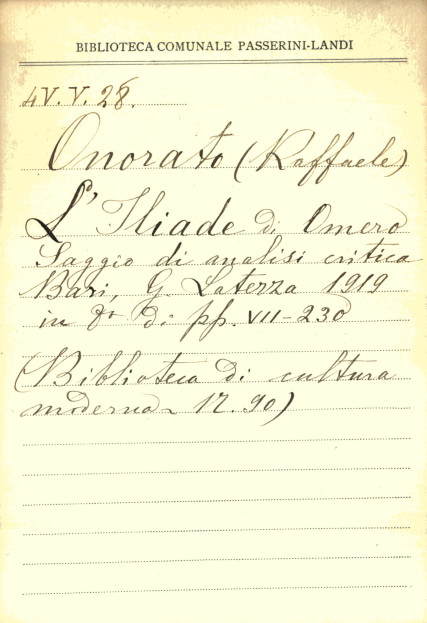 BIBLIOTECA COMUNALE PASSERINI-LANDI
4V. V. 28.
Onorato (Raffaele)
L'Iliade di Omero
Saggio di analisi critica
Bari, G. Laterza 1919
in 8° di pp. VII-230
(Biblioteca di cultura
moderna N. 90)